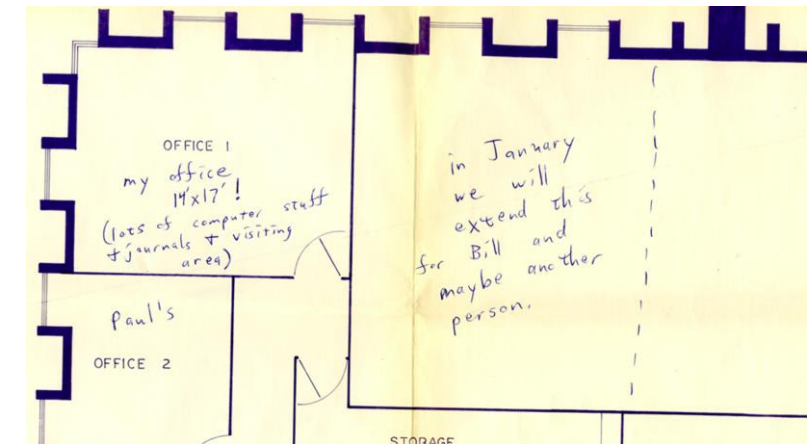 OFFICE 1
my office
14'x17'!
(lots of computer stuff
+ journals + visiting
area)
in January
we will
extend this
for Bill and
maybe another
person.
Paul's
OFFICE 2
STORAGE